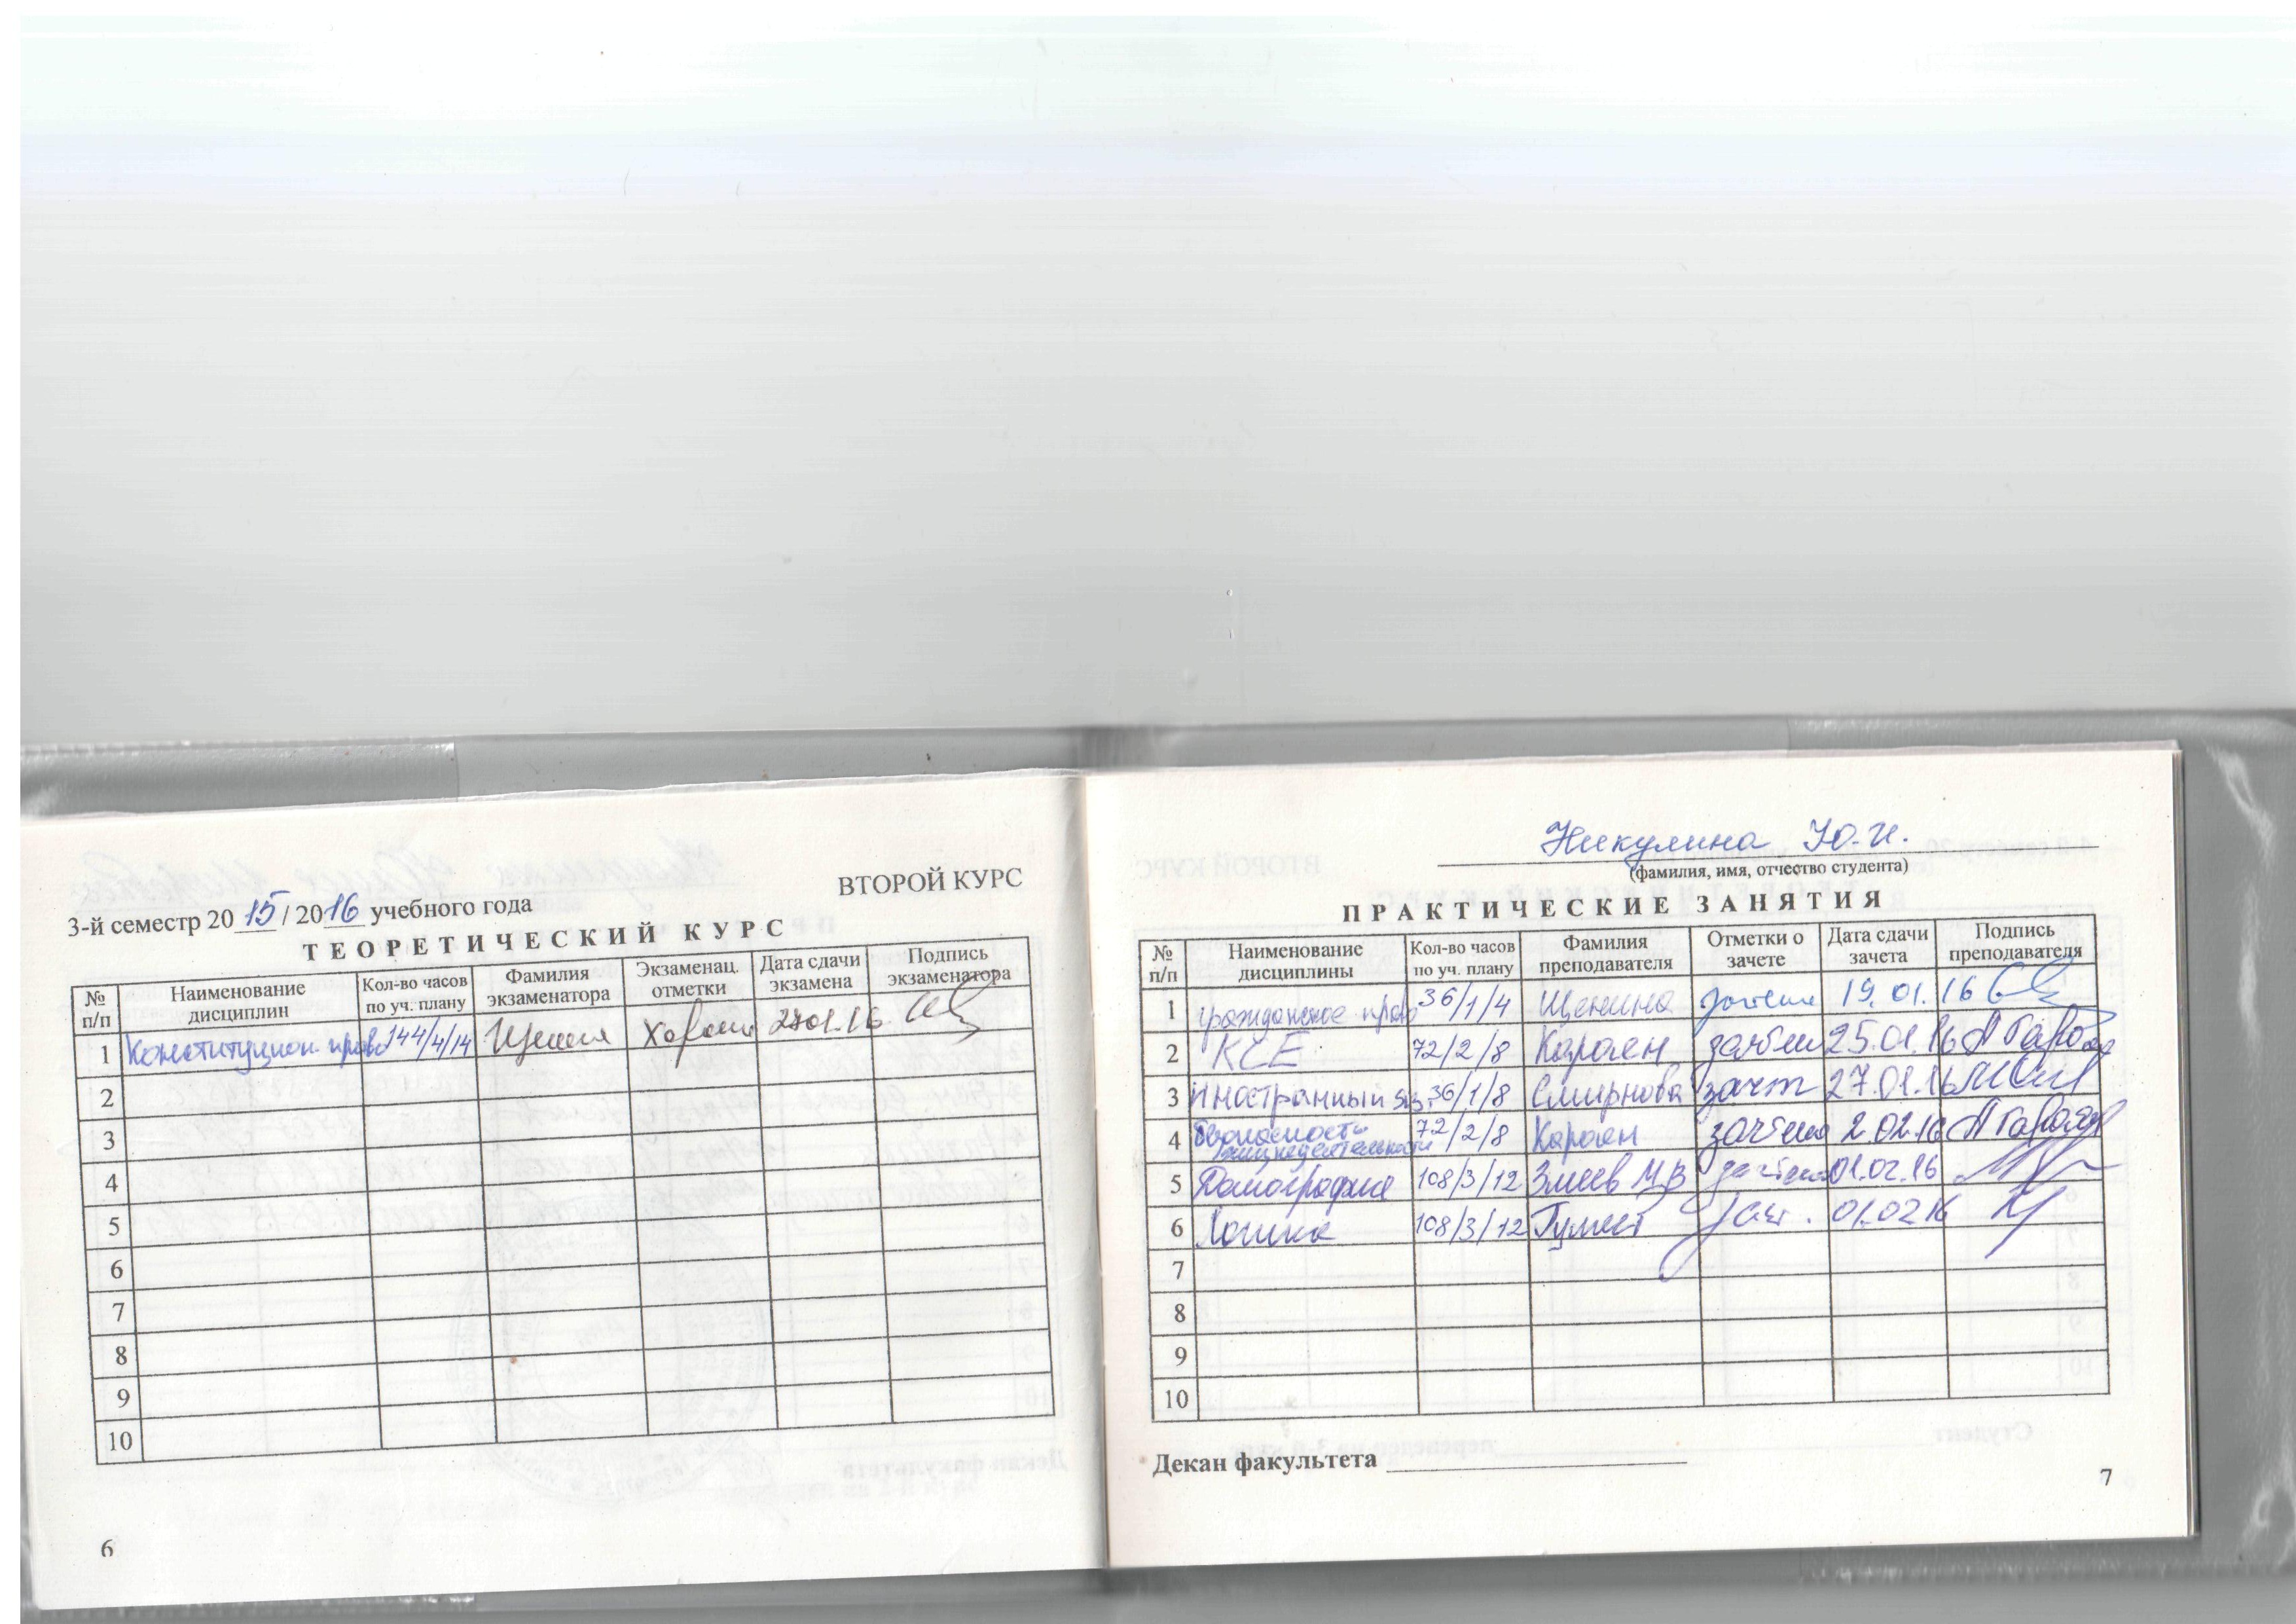 ВТОРОЙ КУРС
3-й семестр 2015/2016 учебного года
ТЕОРЕТИЧЕСКИЙ КУРС
№ п/п Наименование дисциплин Кол-во часов по уч. плану Фамилия экзаменатора Экзаменац. отметки Дата сдачи экзамена Подпись экзаменатора
1 Конституцион. право 144/4/14 Хорошо
2
3
4
5
6
7
8
9
10
6
Никулина Ю.И.
(фамилия, имя, отчество студента)
ПРАКТИЧЕСКИЕ ЗАНЯТИЯ
№ п/п Наименование дисциплины Кол-во часов по уч. плану Фамилия преподавателя Отметки о зачете Дата сдачи зачета Подпись преподавателя
1 Гражданское право 36/1/4 Щенина зачтено 19.01.16
2 КСЕ 72/2/8 зачтено 25.01.16
3 Иностранный яз. 36/1/8 Смирнова зачт 27.01.16
4 Безопасность жизнедеятельности 72/2/8 зачтено 2.02.16
5 Демография 108/3/12 Змеев М.В зачтено 01.02.16
6 Логика 108/3/12 зач. 01.02 16
7
8
9
10
Декан факультета
7